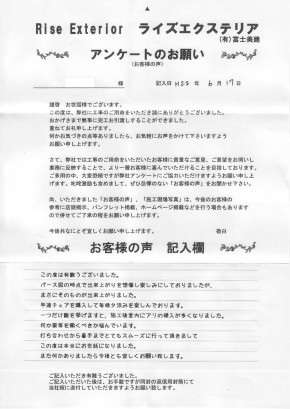 Rise Exterior ライズエクステリア
(有)富士美建
アンケートのお願い
(お客様の声)
様 記入日 H22 年 6 月 17 日
謹啓 お世話様でございます。
この度は、弊社に工事のご用命をいただき誠にありがとうございました。
おかげさまで無事に完工お引渡しすることができました。
重ねてお礼申し上げます。
何かお気付きの点等ありましたら、お気軽にお声をかけて下さいますよう
お願い申し上げます。
さて、弊社では工事のご用命いただいたお客様に貴重なご意見、ご要望をお伺いし
業務に反映することで、よりお客様に喜んでいただけることを目指しております。
ご多用の中、大変恐縮ですが弊社アンケートにご協力いただけますようお願い申し上
げます。叱咤激励も含めまして、ぜひ忌憚のない「お客様の声」をお聞かせ下さい。
尚、いただきました「お客様の声」、「施工現場写真」は、今後のお客様の
参考に店頭掲示、パンフレット掲載、ホームページ掲載などを行う場合もあります
ので併せてご了承の程をお願い申し上げます。
今後共なにとぞ宜しくお願い申し上げます。 敬白
お客様の声 記入欄
この度は有難うございました。
パース図の時点で出来上がりを想像し楽しみにしておりましたが、
まさにそのものが出来上がりました。
早速チェアを購入して毎晩夕涼みを楽しんでおります。
一つだけ難を挙げますと、施工後室内にアリの侵入が多くなりました。
何か薬等を撒くべきか悩んでいます。
打ち合わせから着手までとてもスムーズに行って頂きまして
この度は本当にお世話になりました。
また何かありましたら今後とも宜しくお願い致します。
ご記入いただき有難うございました。
ご記入いただいた後は、お手数ですが同封の返信用封筒にて
当社宛に送付していただきますようお願い致します。